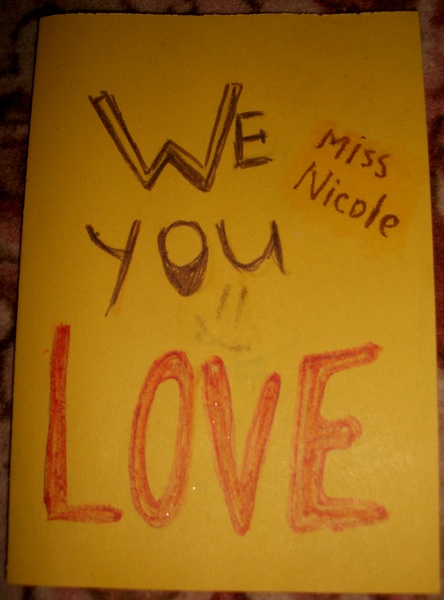 WE
Miss
Nicole
YOU
LOVE